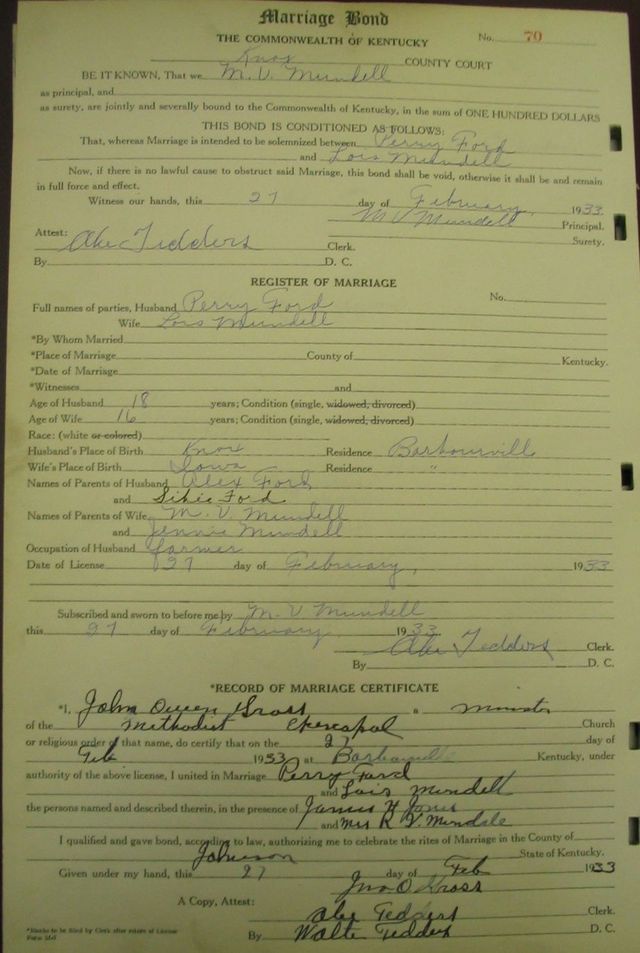 Marriage Bond
THE COMMONWEALTH OF KENTUCKY No. 70
Knox COUNTY COURT
BE IT KNOWN, That we M. V. Mundell
as principal, and
as surety, are jointly and severally bound to the Commonwealth of Kentucky, in the sum of ONE HUNDRED DOLLARS
THIS BOND IS CONDITIONED AS FOLLOWS:
That, whereas Marriage is intended to be solemnized between Perry Ford
and Lois Mundell
Now, if there is no lawful cause to obstruct said Marriage, this bond shall be void, otherwise it shall be and remain
in full force and effect.
Witness our hands, this 27 day of February, 1933.
M V Mundell Principal.
Attest: Surety.
Abe Tedders Clerk.
By D. C.
REGISTER OF MARRIAGE
Full names of parties, Husband Perry Ford No.
Wife Lois Mundell
*By Whom Married
*Place of Marriage County of Kentucky.
*Date of Marriage
*Witnesses and
Age of Husband 18 years; Condition (single, widowed, divorced)
Age of Wife 16 years; Condition (single, widowed, divorced)
Race: (white or colored)
Husband's Place of Birth Knox Residence Barbourville
Wife's Place of Birth Iowa Residence "
Names of Parents of Husband Alex Ford
and Ford
Names of Parents of Wife M. V. Mundell
and Jennie Mundell
Occupation of Husband farmer
Date of License 27 day of February, 1933
Subscribed and sworn to before me by M. V Mundell
this 27 day of February 1933.
Abe Tedders Clerk.
By D. C.
*RECORD OF MARRIAGE CERTIFICATE
*I, John Owen Gross a Minister
of the Methodist Episcopal Church
or religious order of that name, do certify that on the 27 day of
Feb 1933 at Barbourville Kentucky, under
authority of the above license, I united in Marriage Perry Ford
and Lois Mundell
the persons named and described therein, in the presence of James H Jones
and Mrs R. V. Mundele
I qualified and gave bond, according to law, authorizing me to celebrate the rites of Marriage in the County of
Johnson State of Kentucky.
Given under my hand, this 27 day of Feb 1933
Jno O Gross
A Copy, Attest: Abe Tedders Clerk.
By Walter Tedders D. C.
*Blanks to be filled by Clerk after return of License